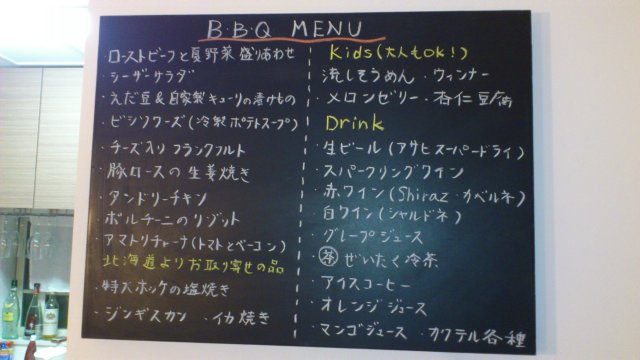 B.B.Q MENU
ローストビーフと夏野菜盛り合わせ
・シーザーサラダ
・えだ豆&自家製キューリの漬けもの
・ビシソワーズ(冷製ポテトスープ)
・チーズ入りフランクフルト
・豚ロースの生姜焼き
・タンドリーチキン
・ポルチーニのリゾット
・アマトリチャーナ(トマトとベーコン)
北海道よりお取り寄せの品
・特大ホッケの塩焼き
・ジンギスカン ・イカ焼き
Kids(大人もOK!)
流しそうめん ・ウィンナー
・メロンゼリー ・杏仁豆腐
Drink
・生ビール(アサヒスーパードライ)
・スパークリングワイン
・赤ワイン(Shiraz・カベルネ)
・白ワイン(シャルドネ)
・グレープジュース
・茶 ぜいたく冷茶
・アイスコーヒー
・オレンジジュース
・マンゴジュース ・カクテル各種